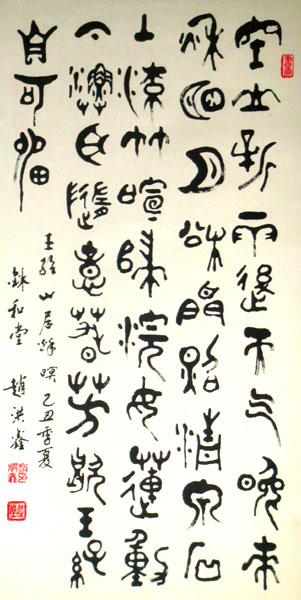 空山新雨後天气晚来
秋明月松間照清泉石
上流竹喧歸浣女蓮動
下漁舟隨意春芳歇王孫
自可留
王維 山居秋暝 己丑季夏
和堂 趙洪鑫